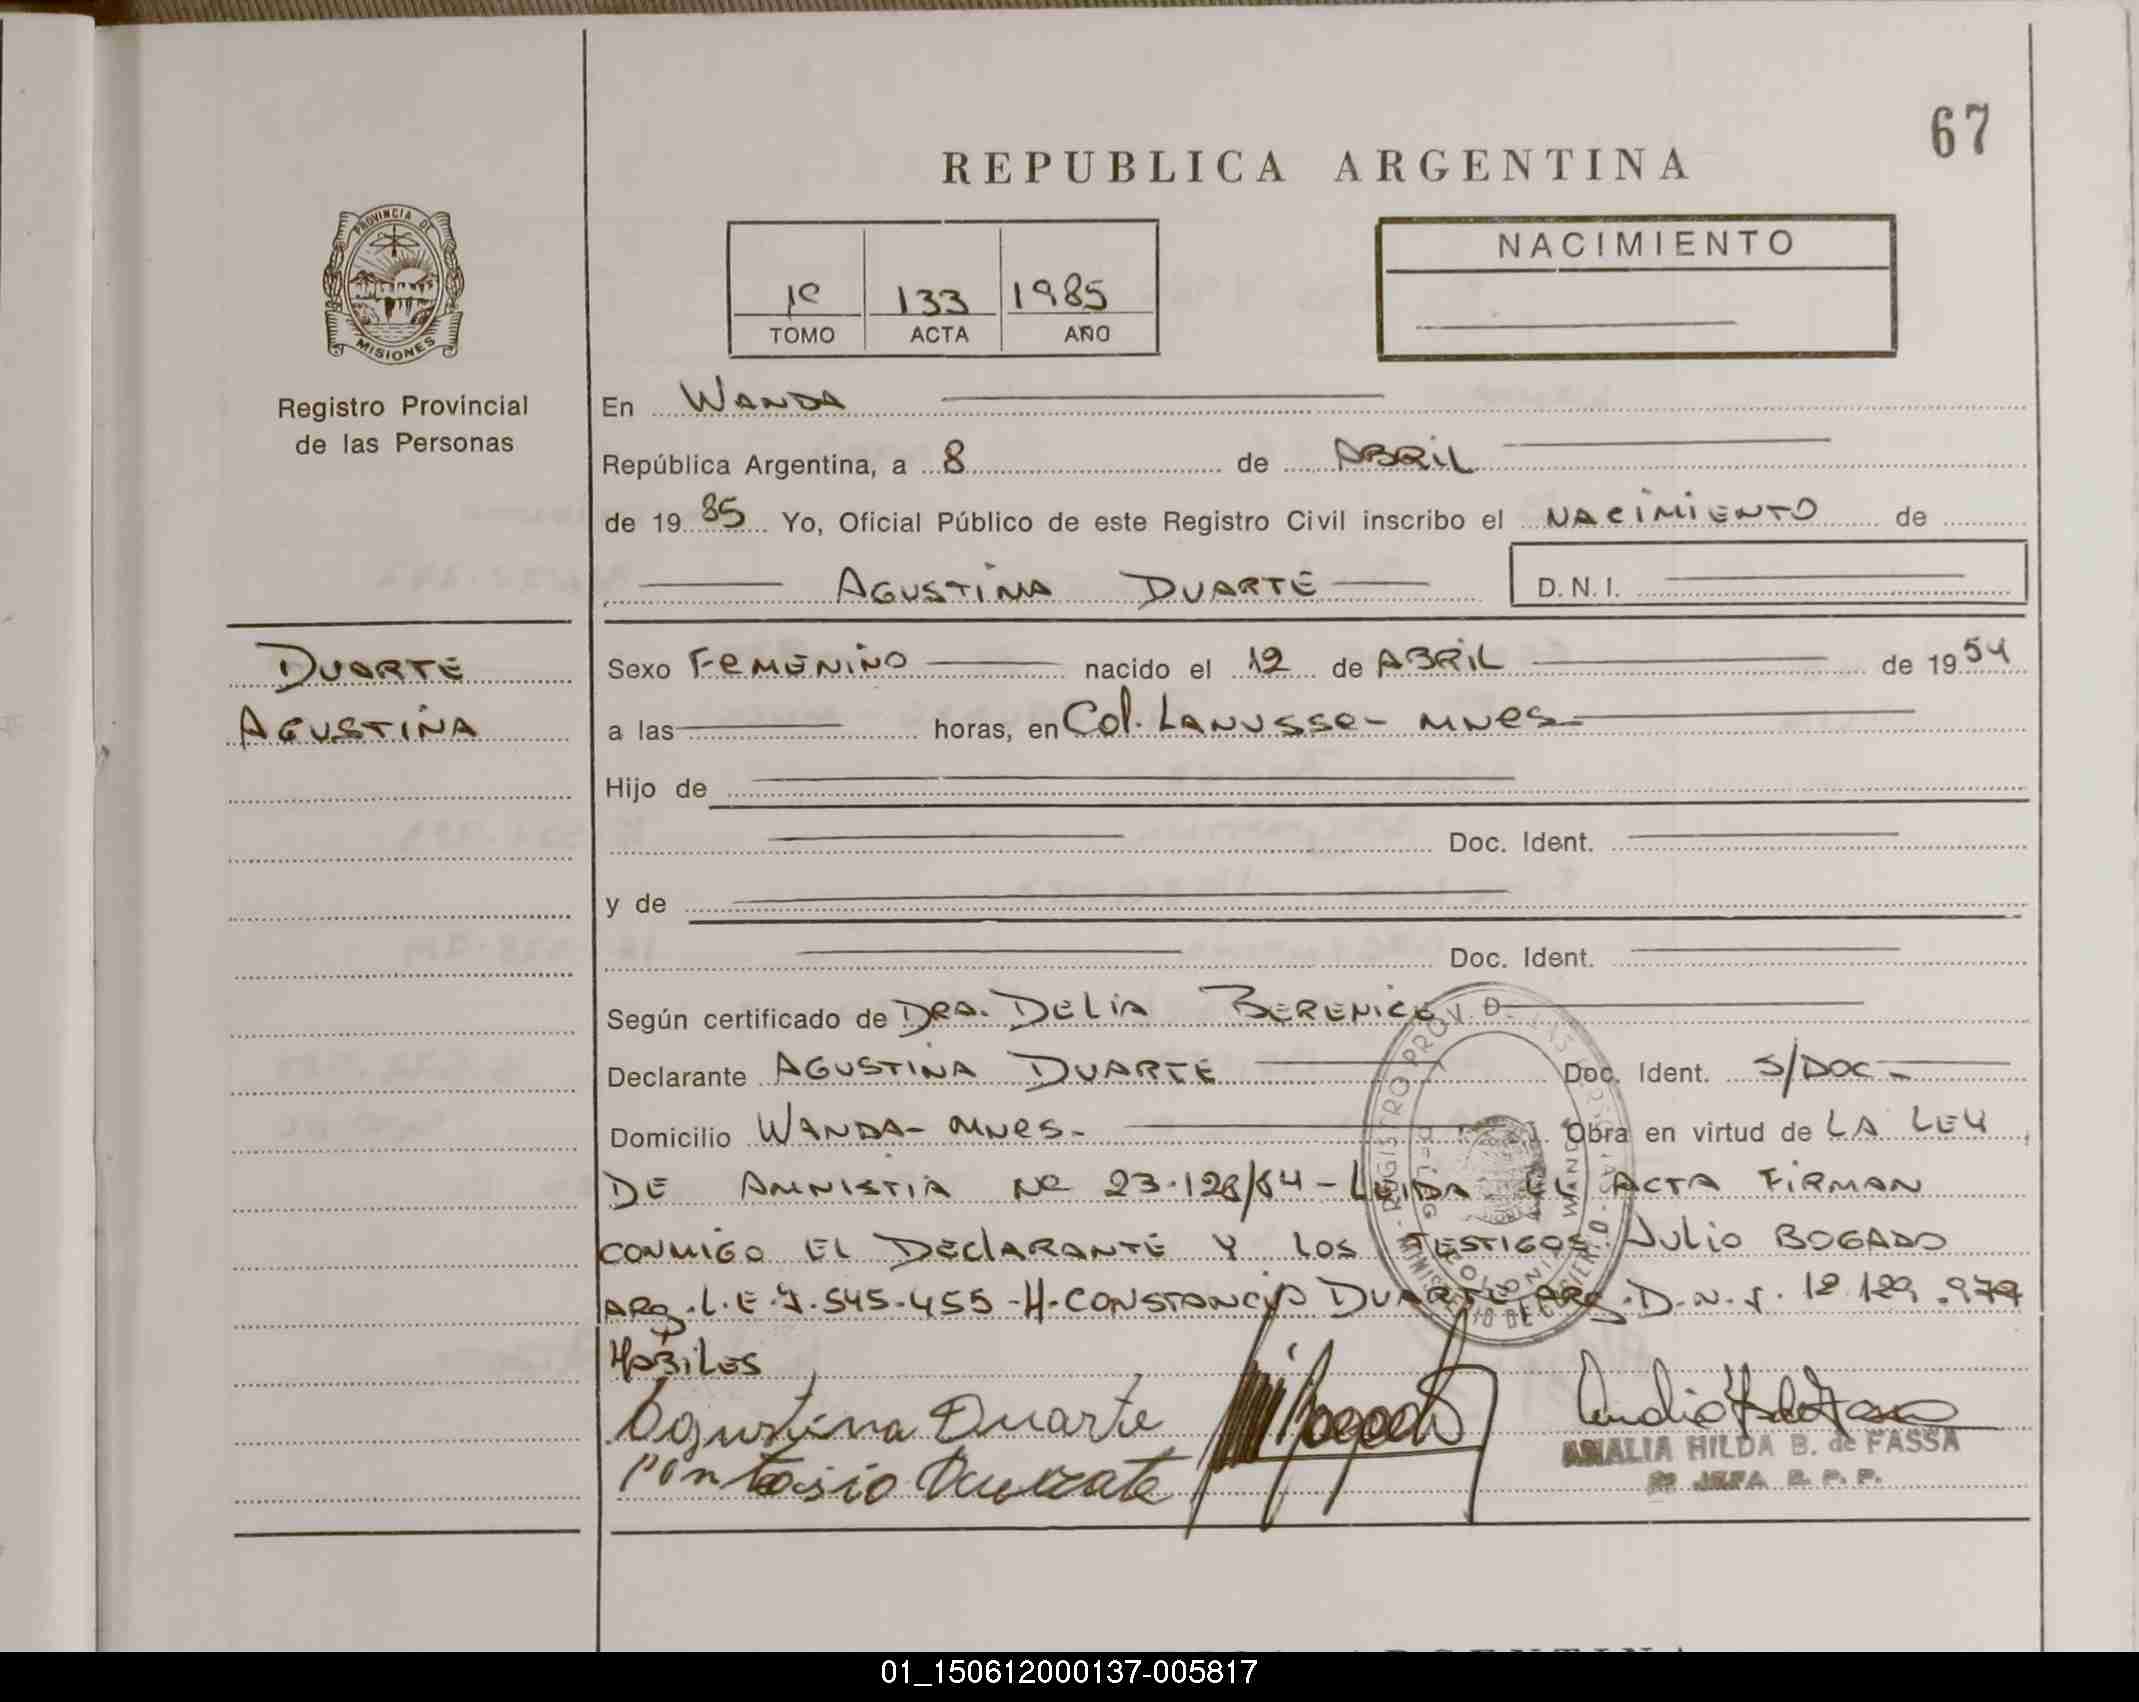 67
REPUBLICA ARGENTINA
PROVINCIA DE
MISIONES
Registro Provincial
de las Personas
1º 133 1985
TOMO ACTA AÑO
NACIMIENTO
En WANDA
República Argentina, a 8 de ABRIL
de 1985 Yo, Oficial Público de este Registro Civil inscribo el NACIMIENTO de
AGUSTINA DUARTE D.N.I.
DUARTE
AGUSTINA
Sexo FEMENINO nacido el 12 de ABRIL de 1954
a las horas, en Col. LANUSSE - MNES -
Hijo de
Doc. Ident.
y de
Doc. Ident.
Según certificado de DRA. DELIA BERENICE
Declarante AGUSTINA DUARTE Doc. Ident. S/DOC -
Domicilio WANDA - MNES - Obra en virtud de LA LEY
DE AMNISTIA Nº 23.128/84 - LEIDA EL ACTA FIRMAN
CONMIGO EL DECLARANTE Y LOS TESTIGOS: JULIO BOGADO
ARG. L.E. 7.545.455 - H- CONSTANCIO DUARTE ARG. D.N.I. 12.129.979
HABILES
Agustina Duarte
Duarte
AMALIA HILDA B. de FASSA
JEFA R. P. P.
01_150612000137-005817